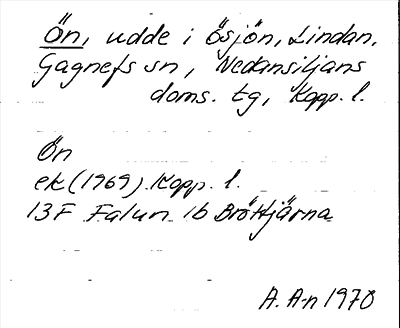 Ön, udde i Ösjön, Lindan,
Gagnefs sn, Nedansiljans
doms. tg, Kopp. l.
Ön
ek (1969) Kopp. l.
13F Falun 1b Bröttjärna
A. A-n 1970